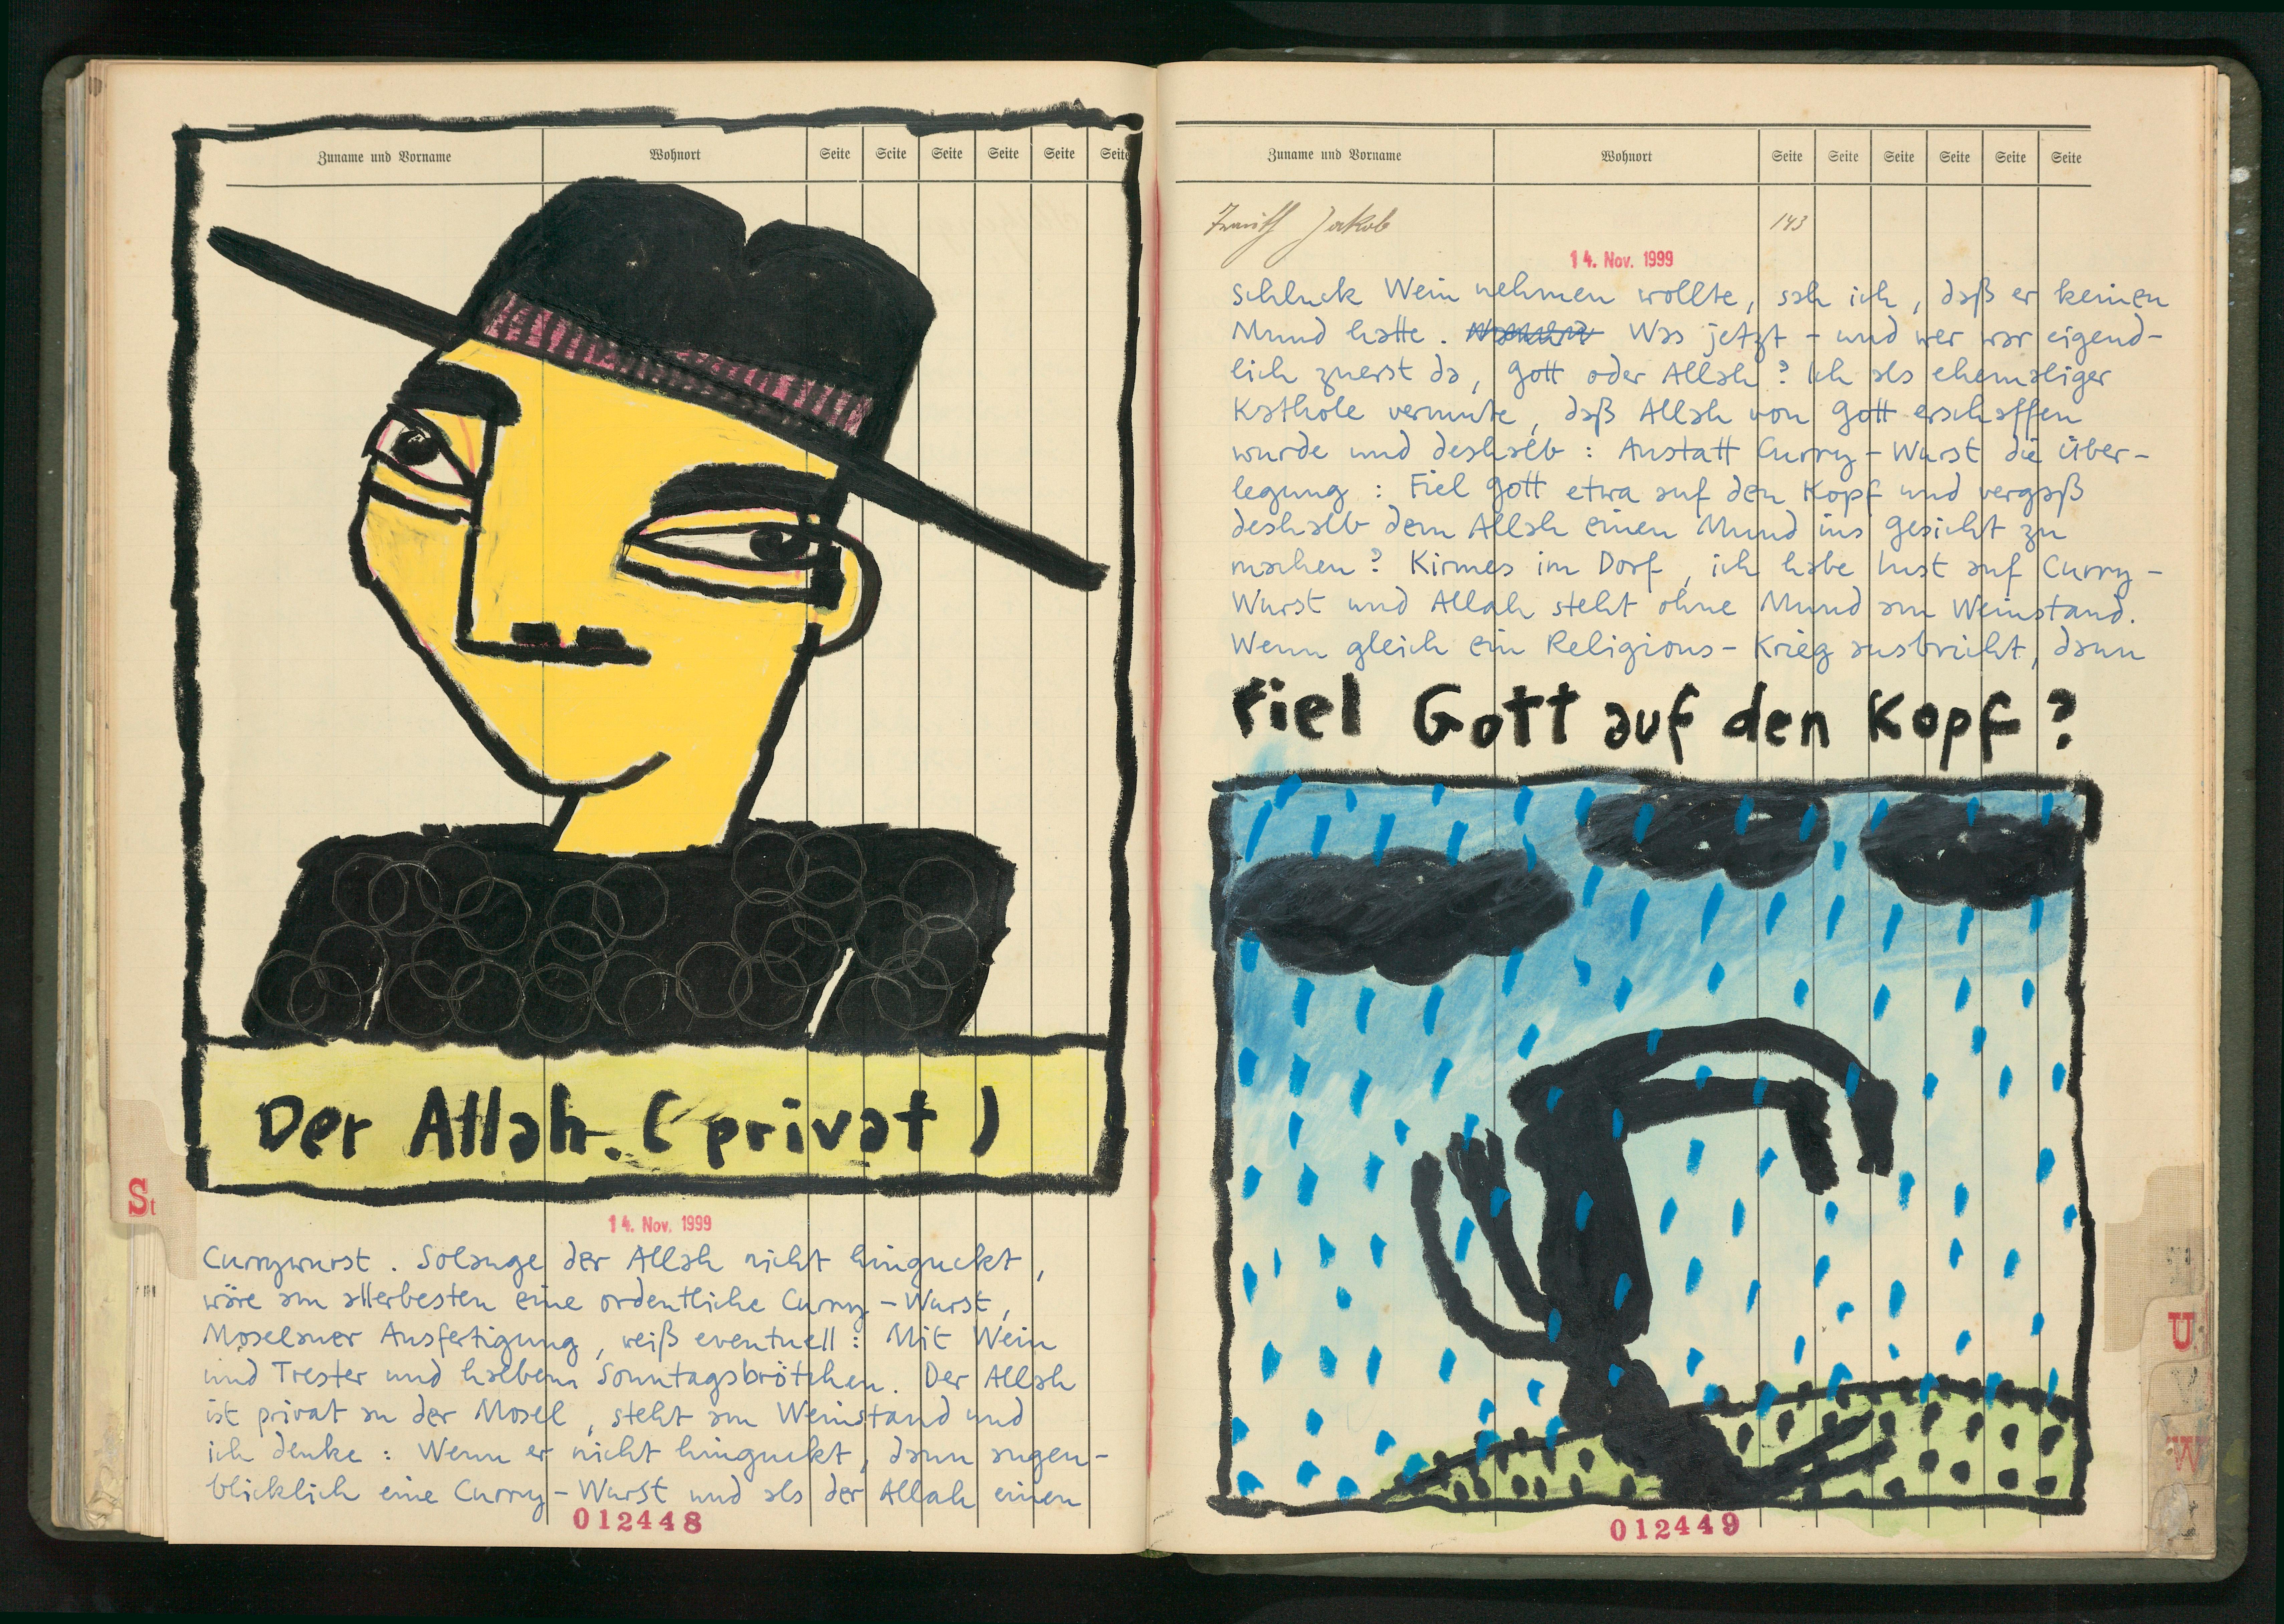 Zuname und Vorname Wohnort Seite Seite Seite Seite Seite Seite
Der Allah. (privat)
St
14. Nov. 1999
Currywurst. Solange der Allah nicht hinguckt,
wäre am allerbesten eine ordentliche Curry-Wurst,
Moselaner Ausfertigung, weiß eventuell: Mit Wein
und Trester und halbem Sonntagsbrötchen. Der Allah
ist privat an der Mosel, steht am Weinstand und
ich denke: Wenn er nicht hinguckt, dann augen-
blicklich eine Curry-Wurst und als der Allah einen
012448
Zuname und Vorname Wohnort Seite Seite Seite Seite Seite Seite
Jakob 143
14. Nov. 1999
Schluck Wein nehmen wollte, sah ich, daß er keinen
Mund hatte. Was jetzt - und wer war eigend-
lich zuerst da, Gott oder Allah? Ich als ehemaliger
Kathole vermute, daß Allah von Gott erschaffen
wurde und deshalb: Anstatt Curry-Wurst die Über-
legung: Fiel Gott etwa auf den Kopf und vergaß
deshalb dem Allah einen Mund ins Gesicht zu
machen? Kirmes im Dorf, ich habe Lust auf Curry-
Wurst und Allah steht ohne Mund am Weinstand.
Wenn gleich ein Religions-Krieg ausbricht, dann
Fiel Gott auf den Kopf?
U
V
W
012449